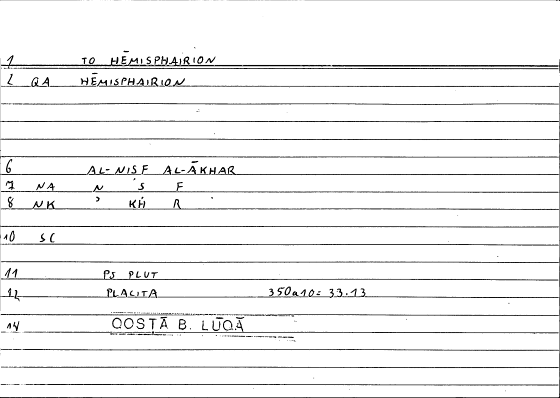 1 TO HĒMISPHAIRION
2 QA HĒMISPHAIRION
6 AL-NISF AL-ĀKHAR
7 NA N Ṣ F
8 NK ʾ KH R
10 SC
11 PS PLUT
12 PLACITA 350a10 = 33.13
14 QOSTĀ B. LŪQĀ